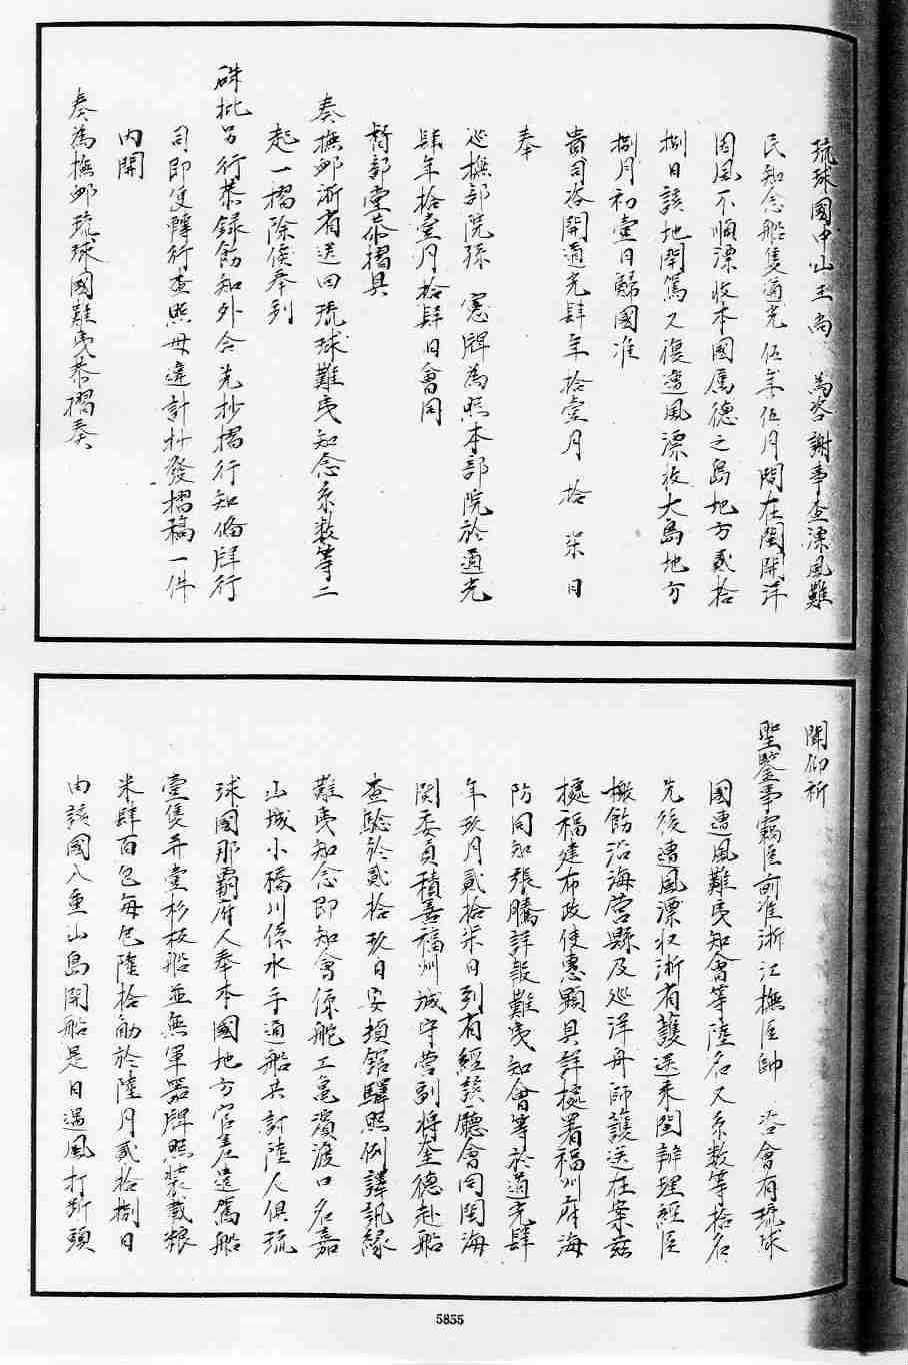 琉球國中山王尚 為咨謝事查漂風難
民知念船隻道光伍年伍月間在閩開洋
因風不順漂收本國属德之島地方貳拾
捌日該地開駕又復遭風漂收大島地方
捌月初壹日歸國准
貴司咨開道光肆年拾壹月拾柒日
奉
巡撫部院孫 憲牌為照本部院於道光
肆年拾壹月拾肆日會同
督部堂恭摺具
奏撫卹浙省送回琉球難夷知念系数等二
起一摺除俟奉到
硃批另行恭録飭知外合先抄摺行知備牌行
司即便轉行查照毋違計抄發摺稿一件
內開
奏為撫卹琉球國難夷恭摺奏
聞仰祈
聖鑒事竊臣前准浙江撫臣帥 咨會有琉球
國遭風難夷知會等陸名又系数等拾名
先後遭風漂收浙省護送来閩辦理經臣
檄飭沿海營縣及巡洋舟師護送在案茲
據福建布政使惠顯具詳據署福州府海
防同知張騰詳報難夷知會等於道光肆
年玖月貳拾柒日到有經該廳會同閩海
関委員積善福州城守營副將奎德赴船
查驗於貳拾玖日安頓館驛照例譯訊緣
難夷知念即知會係舵工亀濱渡口名嘉
山城小橋川係水手通船共計陸人俱琉
球國那覇府人奉本國地方官差遣駕船
壹隻并壹杉板船並無軍器牌照裝載粮
米肆百包每包陸拾觔於陸月貳拾捌日
由該國八重山島開船是日遇風打斷頭
5855